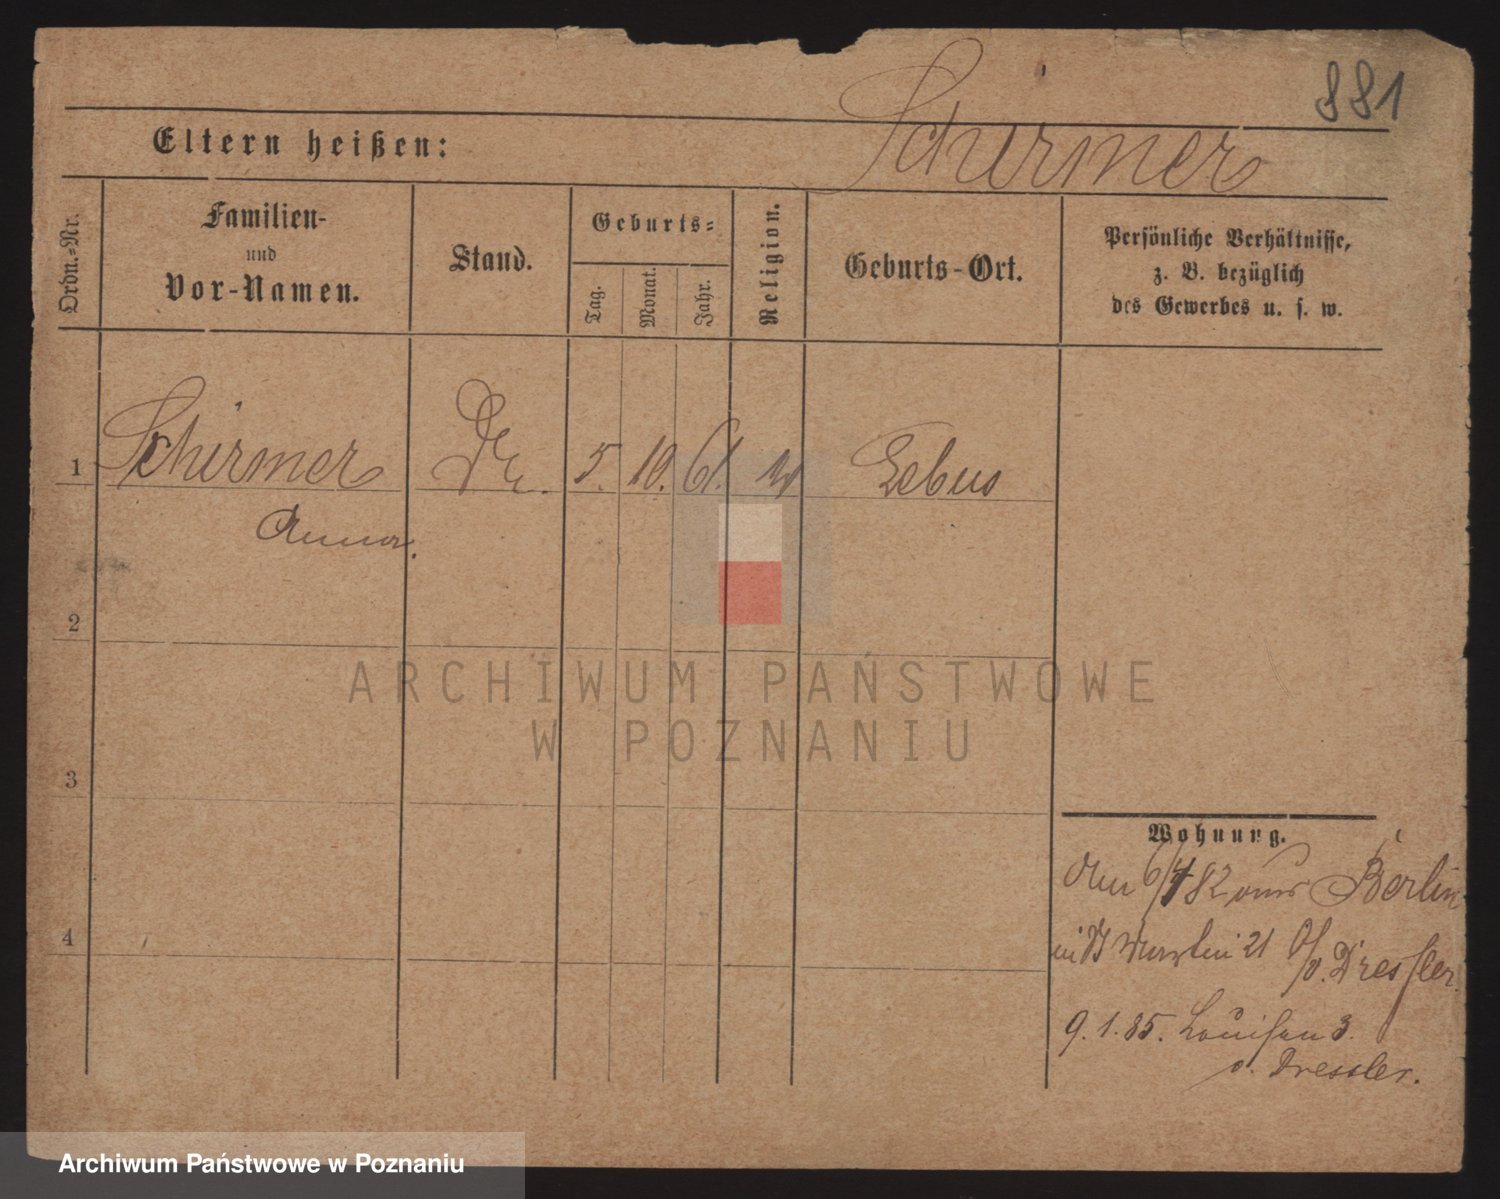 881
Schirmer
Eltern heißen:
Ordn.-Nr.
Familien-
und
Vor-Namen.
Stand.
Geburts-
Tag.
Monat.
Jahr.
Religion.
Geburts-Ort.
Persönliche Verhältnisse,
z. B. bezüglich
des Gewerbes u. s. w.
1 Schirmer 5. 10. 61. Lebus
Anna.
2
3
4
Wohnung.
den 6/4 82 aus Berlin
St Martin 21 b/v. Dressler.
9.1.85. Louisen 3.
v. Dressler.
ARCHIWUM PAŃSTWOWE
W POZNANIU
Archiwum Państwowe w Poznaniu